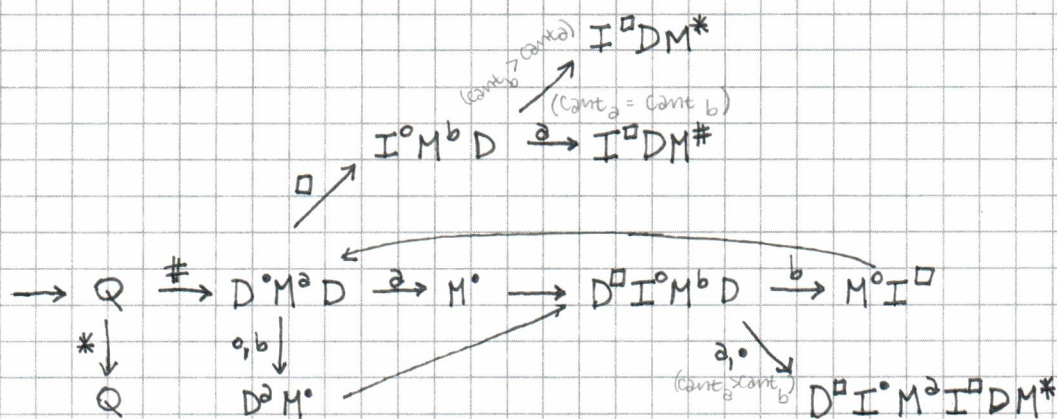 I□DM*
(cant_b > cant_a)
(cant_a = cant_b)
I°MᵇD a I□DM#
□
Q # D•MᵃD a M• D□I°MᵇD b M°I□
* °,b a,•
(cant_a > cant_b)
Q DᵃM• D□I•MᵃI□DM*